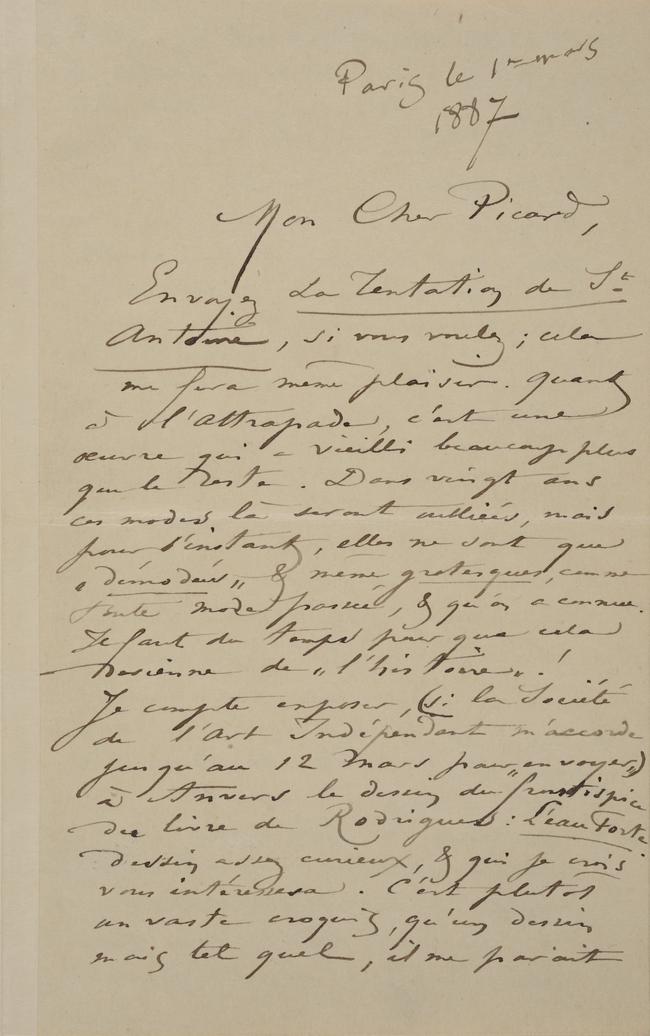 Paris le 1er mars
1887
Mon Cher Picard,
Envoyez La Tentation de St
Antoine, si vous voulez ; cela
me fera même plaisir. Quant
à l'Attrapade, c'est une
œuvre qui a vieilli beaucoup plus
que le reste. Dans vingt ans
ces modes là seront oubliées, mais
pour l'instant, elles ne sont que
„démodées„ & même grotesques, comme
toute mode passée, & qu'on a connue.
Il faut du temps pour que cela
devienne de „l'histoire„ !
Je compte exposer, (si la Société
de l'Art Indépendant m'accorde
jusqu'au 12 mars pour „envoyer„)
à Anvers le dessin du frontispice
du livre de Rodrigues : L'eau Forte
dessin assez curieux, & qui je crois
vous intéressera. C'est plutôt
un vaste croquis, qu'un dessin
mais tel quel, il me parait